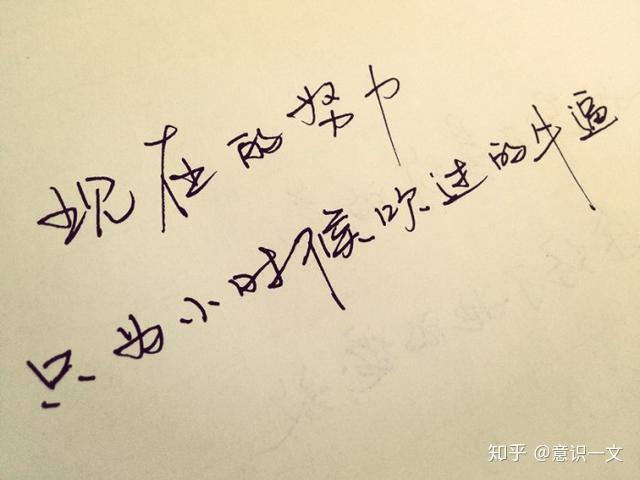 现在的努力
只为小时候吹过的牛逼
知乎 @意识一文